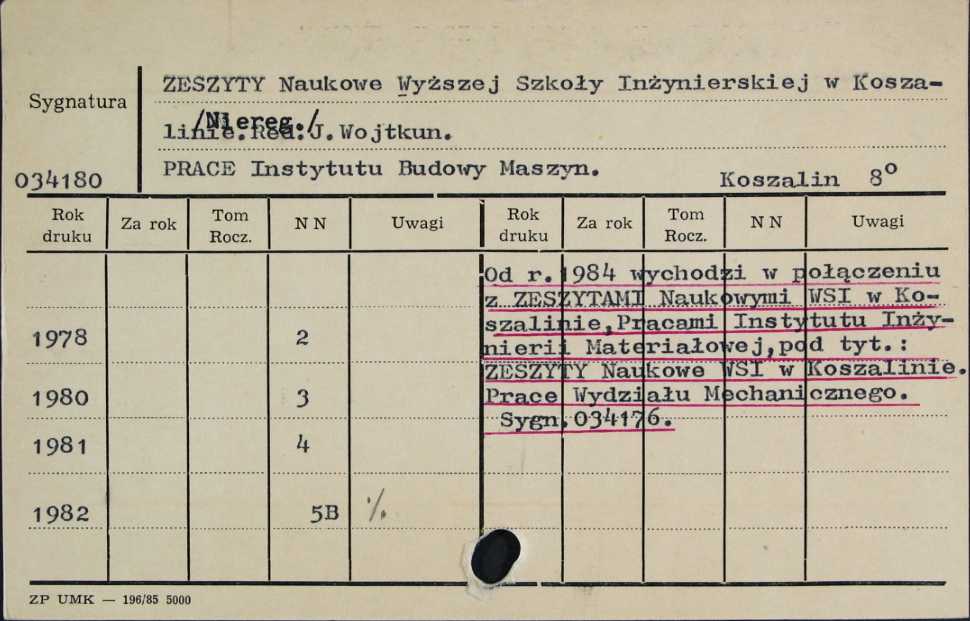 ZESZYTY Naukowe Wyższej Szkoły Inżynierskiej w Kosza-
Sygnatura
/Niereg./
linie.Red.J.Wojtkun.
PRACE Instytutu Budowy Maszyn.
034180
Koszalin 8°
Rok druku Za rok Tom Rocz. N N Uwagi Rok druku Za rok Tom Rocz. N N Uwagi
Od r.1984 wychodzi w połączeniu
z ZESZYTAMI Naukowymi WSI w Ko-
szalinie,Pracami Instytutu Inży-
nierii Materiałowej,pod tyt.:
ZESZYTY Naukowe WSI w Koszalinie.
Prace Wydziału Mechanicznego.
Sygn.034176.
1978 2
1980 3
1981 4
1982 5B %
ZP UMK — 196/85 5000